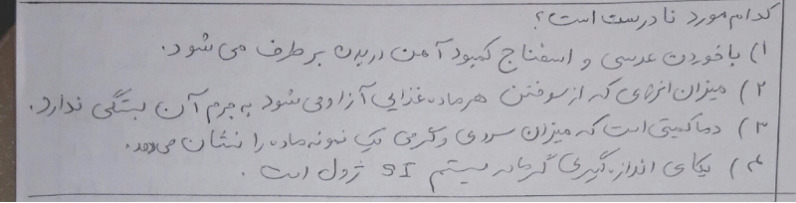 کدام مورد نادرست است؟
۱) با خوردن عدسی و اسفناج کمبود آهن در بدن برطرف می شود.
۲) میزان انرژی که از سوختن هر ماده غذایی آزاد می شود به جرم آن بستگی ندارد.
۳) دما کمیتی است که میزان سردی و گرمی یک نمونه ماده را نشان می دهد.
۴) یکای اندازه گیری گرما در سیستم SI ژول است.